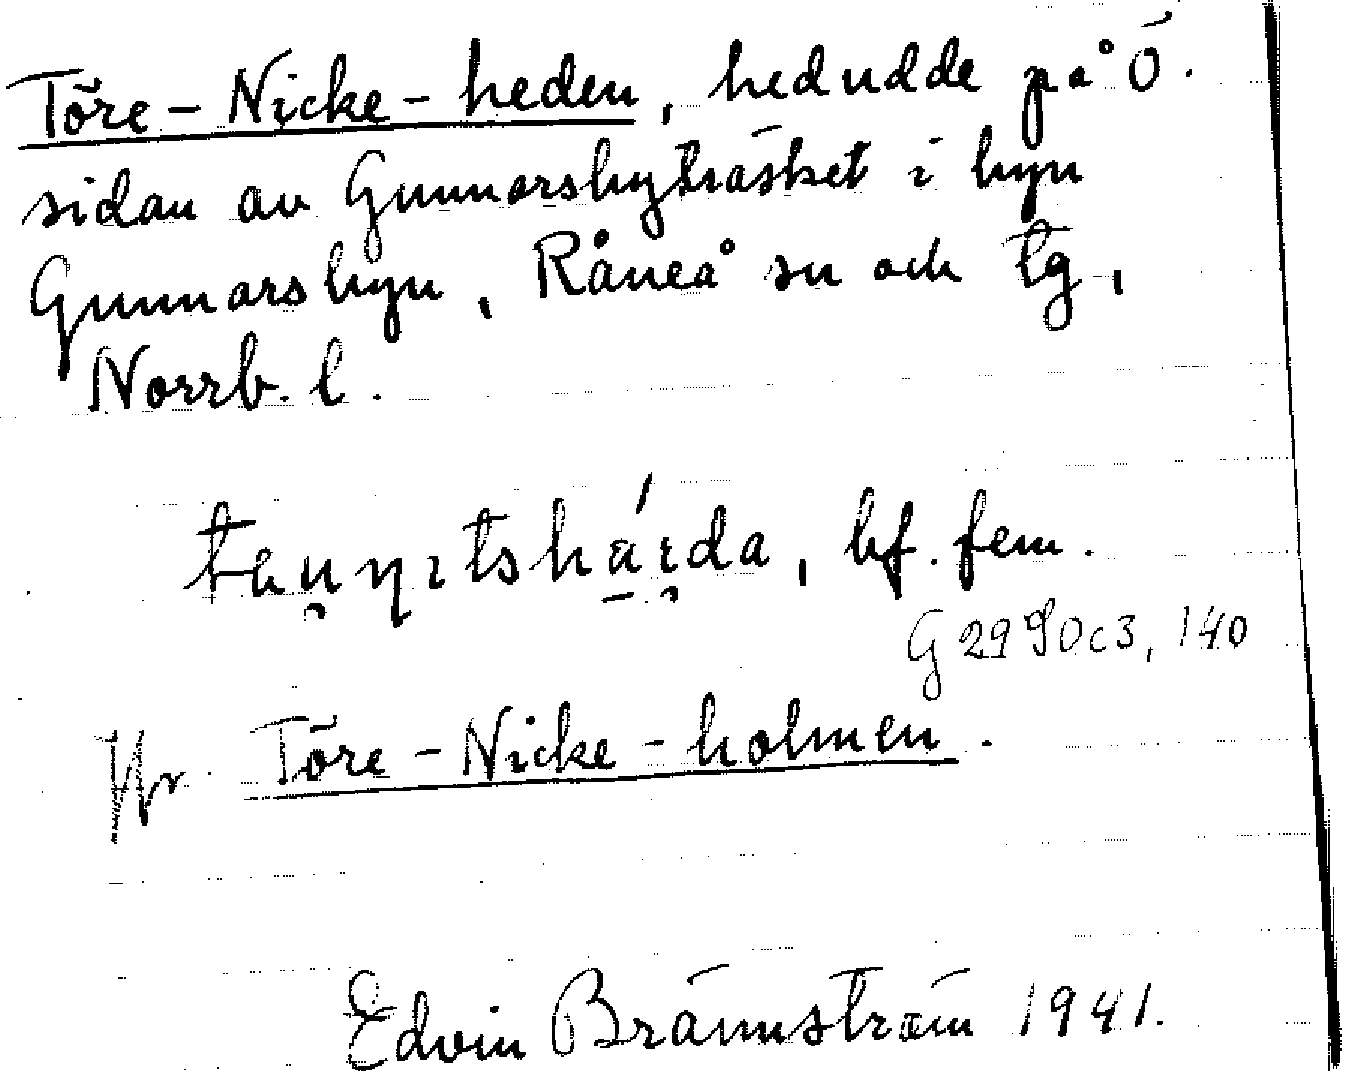 Töre-Nicke-heden, hedudde på Ö.
sidan av Gunnarsbyträsket i byn
Gunnarsbyn, Råneå sn och tg,
Norrb. l.
bf. fem.
G 29 9 0c3, 140
Jfr Töre-Nicke-holmen.
Edvin Brännström 1941.